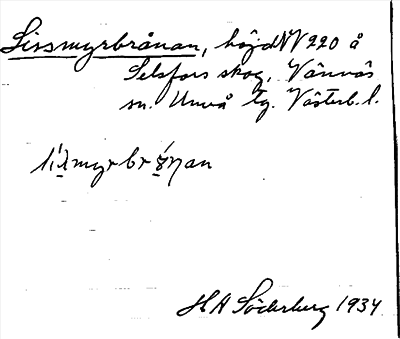 Lissmyrbrånan, höjd NV 220 å
Selsfors skog, Vännäs
sn. Umeå tg. Västerb. l.
H A Söderberg 1934